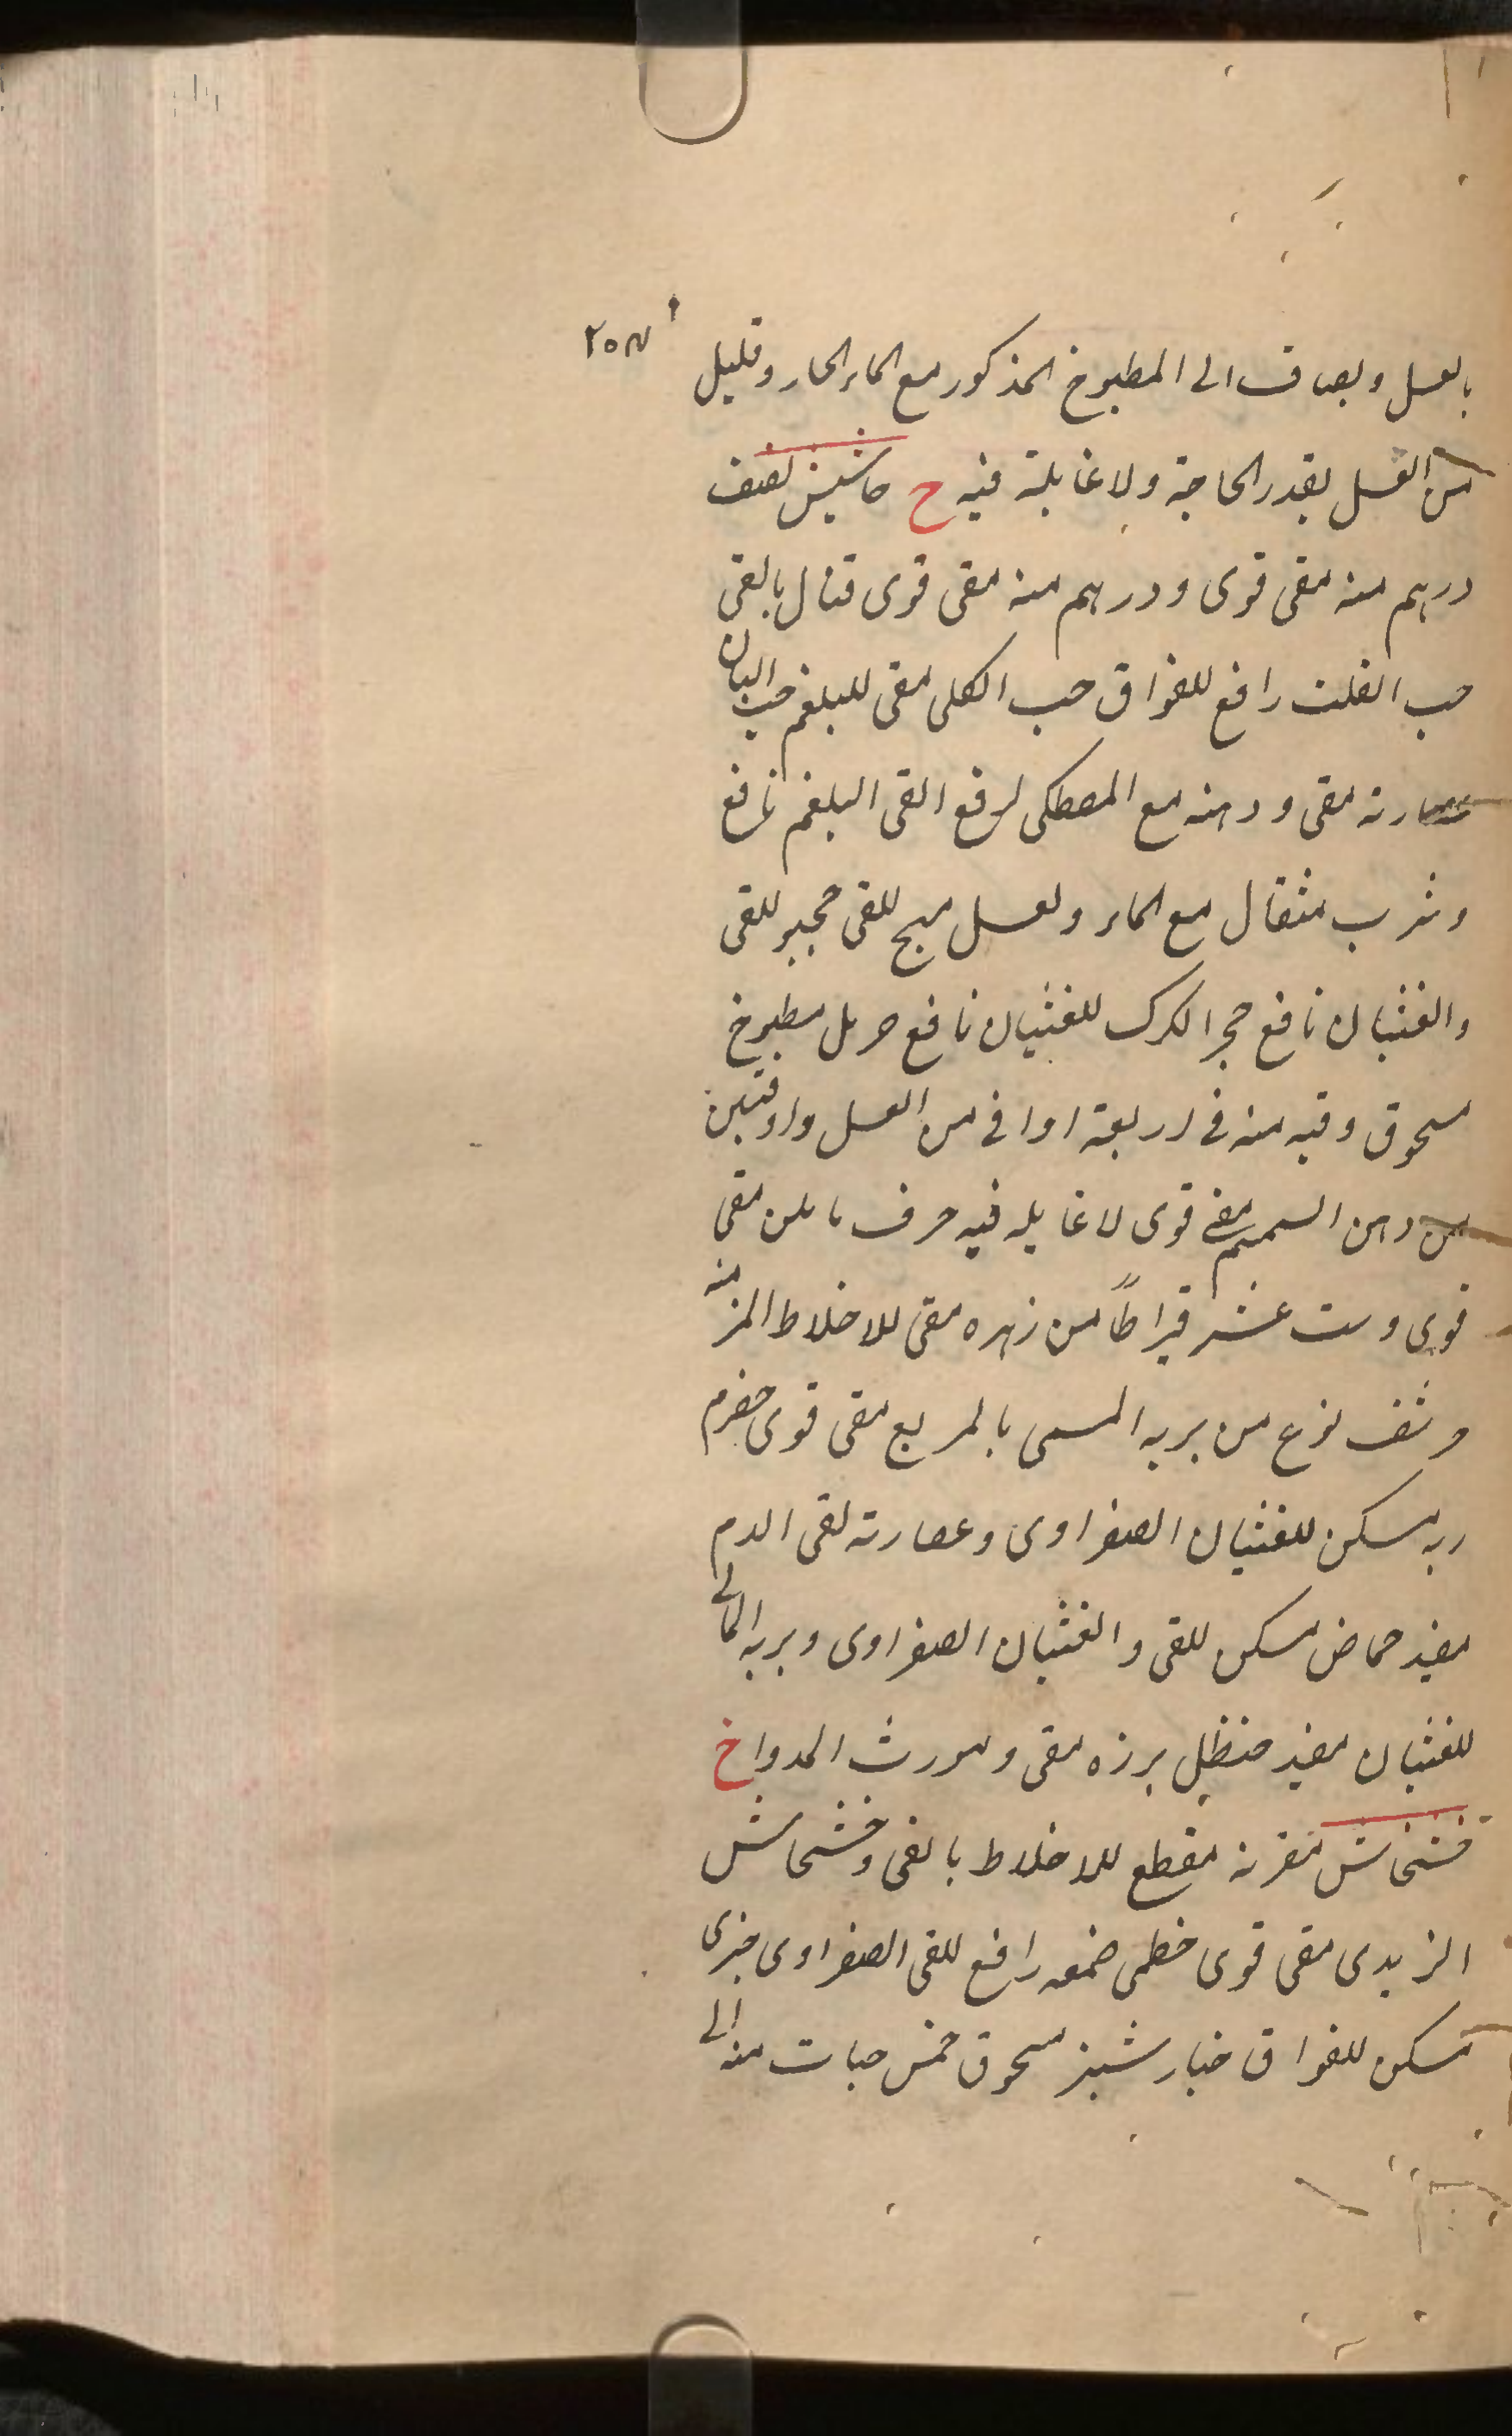 ٢٥٨
بالعسل ويضاف الى المطبوخ المذكور مع الماء الحار وقليل
من العسل بقدر الحاجة ولا غايلة فيه ح حاشيش نصف
درهم منه مقى قوى ودرهم منه مقى قوى قتال بالقى
حب القلت رافع للفواق حب الكلى مقى للبلغم حب البان
عصارته مقى ودهنه مع المصطكى لرفع القى البلغم نافع
وشرب مثقال مع الماء ولعسل مهيج للقى حجير للقى
والغثيان نافع حجر الكرك للغثيان نافع حرمل مطبوخ
مسحوق وقيه منه فى اربعة اواقى من العسل واوقتين
من دهن السمسم مقى قوى لا غايله فيه حرف مقى
قوى وست عشر قيراطاً من زهره مقى للاخلاط المزمنه
وشف نوع من بريه المسمى بالمربع مقى قوى حضرم
ربه مسكن للغثيان الصفراوى وعصارته لقى الدم
مفيد حماض مسكن للقى والغثيان الصفراوى وبريه المائى
للغثيان مفيد حنظل برزه مقى ومورث المدوا خ
خشخاش مقرنه مقطع للاخلاط بالقى وخشخاش
الزبدى مقى قوى خطمى ضمغه رافع للقى الصفراوى خيرى
مسكن للفواق خيار شنبر مسحوق خمس حبات منه الى